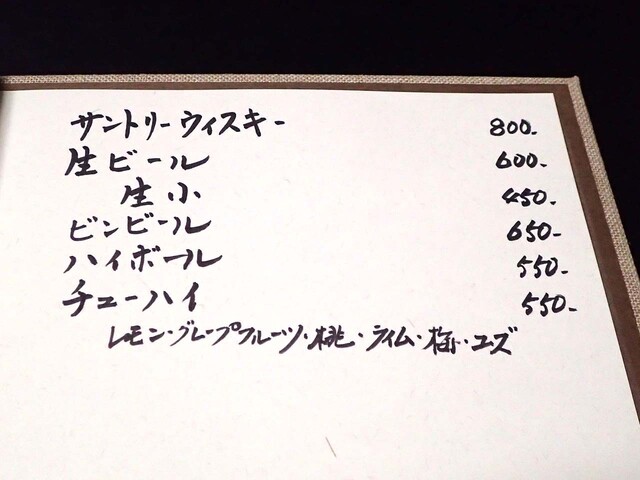 サントリーウィスキー 800-
生ビール 600-
生小 450-
ビンビール 650-
ハイボール 550-
チューハイ 550-
レモン・グレープフルーツ・桃・ライム・梅・ユズ